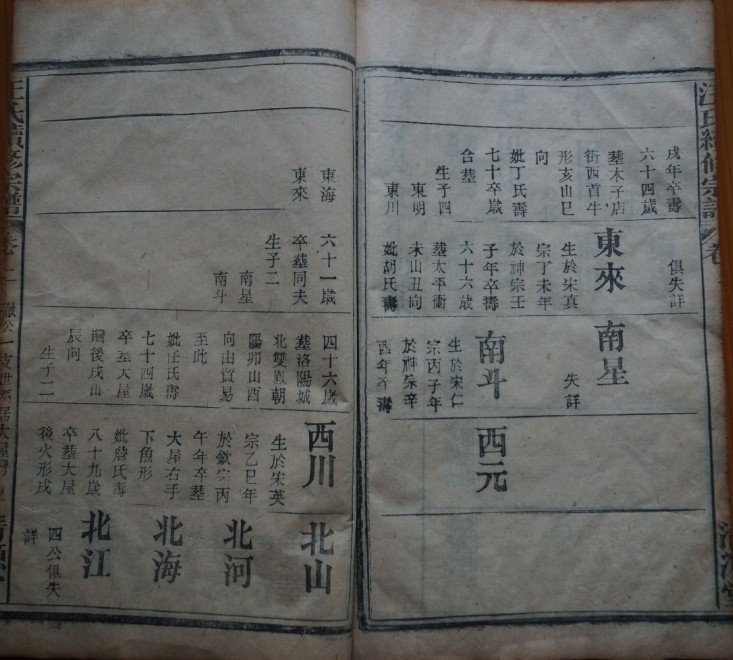 汪氏續修宗譜 卷
戌年卒壽
六十四歲
塟木子店
街西首牛
形亥山巳
向
妣丁氏壽
七十卒歲
合塟
生子四
東明
東川
俱失詳
東來
生於宋真
宗丁未年
於神宗壬
子年卒壽
六十六歲
塟太平衝
未山丑向
妣胡氏壽
南星
失詳
南斗
生於宋仁
宗丙子年
於神宗辛
酉年卒壽
西元
東海
東來
六十一歲
卒塟同夫
生子二
南星
南斗
四十六歲
塟洛陽城
北雙觀朝
陽卯山酉
向由貿易
至此
妣任氏壽
七十四歲
卒塟大屋
灣後戌山
辰向
生子二
西川
生於宋英
宗乙巳年
於欽宗丙
午年卒塟
大屋右手
下魚形
妣詹氏壽
八十九歲
卒塟大屋
後火形戌
北山
北河
北海
北江
四公俱失
詳
汪氏續修宗譜